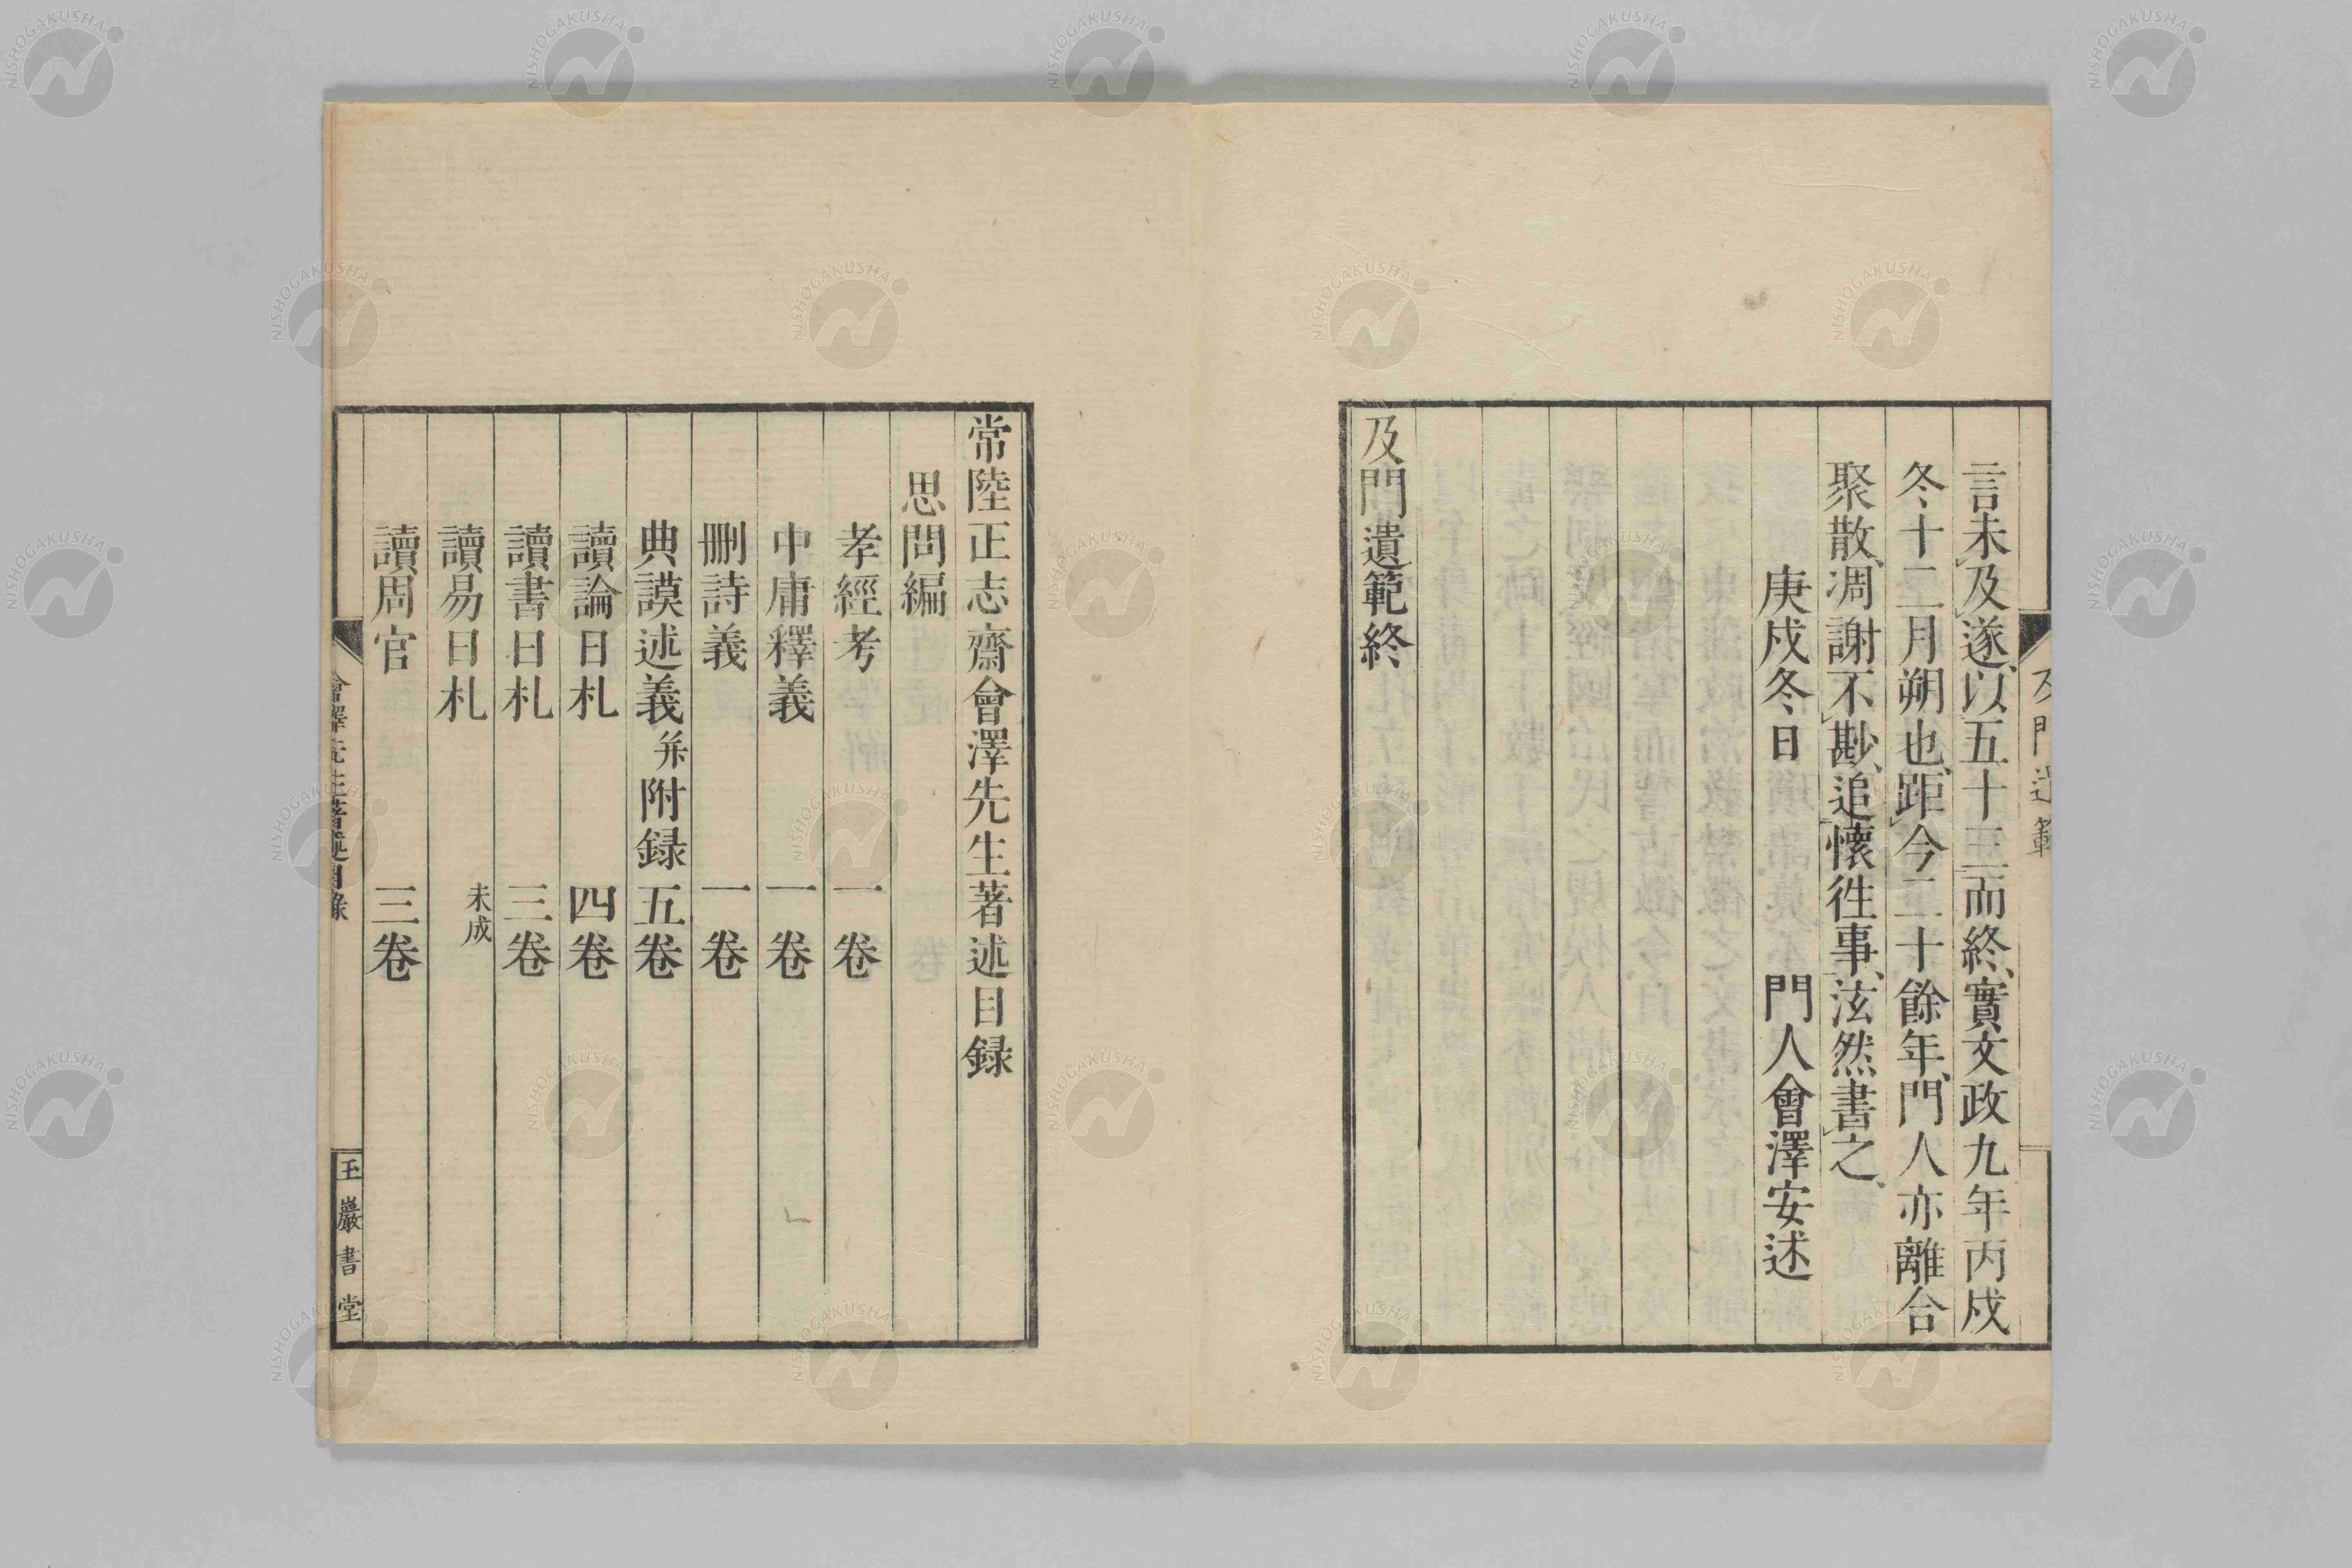 言未及、遂以五十三而終、實文政九年丙戌
冬十二月朔也、距今二十餘年、門人亦離合
聚散、凋謝不尠、追懷徃事、泫然書之、
庚戌冬日　門人會澤安述
及門遺範終
及門遺範
常陸正志齋會澤先生著述目録
思問編
孝經考　一卷
中庸釋義　一卷
刪詩義　一卷
典謨述義并附録　五卷
讀論日札　四卷
讀書日札　三卷
讀易日札　未成
讀周官　三卷
會澤先生著述目錄
玉巖書堂
NISHOGAKUSHA